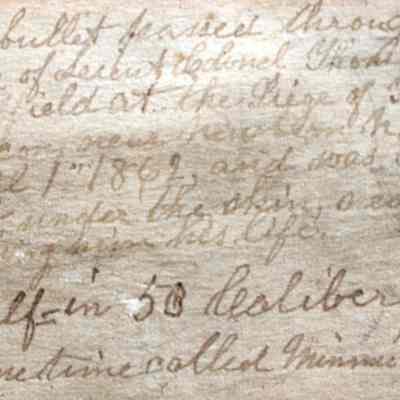 bullet passed throu
of Leieut Colonel Thom
Field at the Siege of
1st 1862, and was
under the skin,
him his life.
lf-in 58 Caliber
time called Minnie